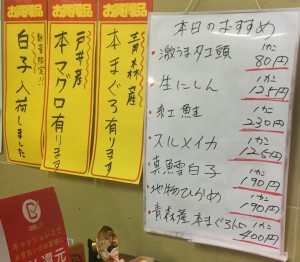 お買得品
数量限定!!
白子入荷しました
お買得品
戸井産
本マグロ有ります
お買得品
青森産
本まぐろ有ります
本日のおすすめ
・激うまタコ頭 1カン 80円
・生にしん 1カン 125円
・紅鮭 1カン 230円
・スルメイカ 1カン 125円
・真鱈白子 1カン 190円
・地物ひらめ 1カン 190円
・青森産 本まぐろトロ 1カン 400円
キャッシュレスで
還元